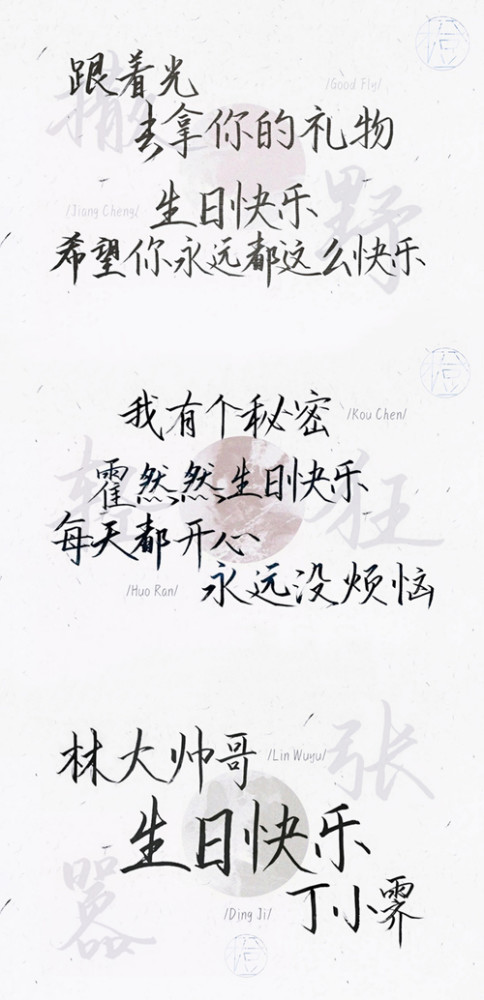 撒野
跟着光
/Good Fly/
去拿你的礼物
/Jiang Cheng/
生日快乐
希望你永远都这么快乐
轻狂
我有个秘密
/Kou Chen/
霍然然生日快乐
每天都开心
/Huo Ran/
永远没烦恼
嚣张
林大帅哥
/Lin Wuyu/
生日快乐
丁小霁
/Ding Ji/